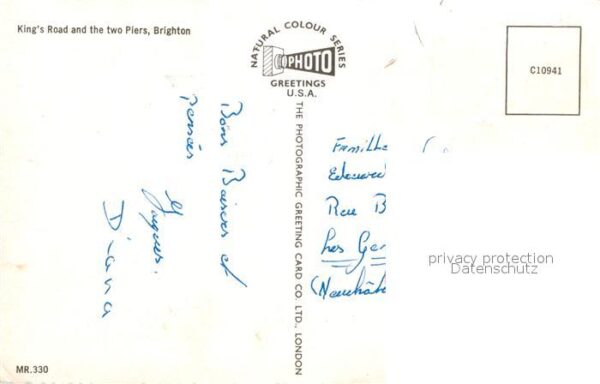 King's Road and the two Piers, Brighton
NATURAL COLOUR SERIES
PHOTO
GREETINGS
U.S.A.
C10941
THE PHOTOGRAPHIC GREETING CARD CO. LTD., LONDON
Bons Baisers et
pensées
Jaques.
Diana
Famille
Edouard
Rue B
Les Ge
(Neuchât
privacy protection
Datenschutz
MR.330